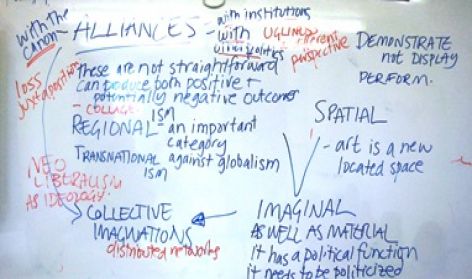 with the
canon
ALLIANCES
with institutions
with UGLINESS
different
perspective
DEMONSTRATE
not DISPLAY
PERFORM.
loss
juxtaposition
these are not straightforward
can produce both positive +
potentially negative outcomes
- COLLAGE
REGIONALISM - an important
category
TRANSNATIONALISM against globalism
SPATIAL
- art is a new
located space
NEO
LIBERALISM
AS IDEOLOGY
COLLECTIVE
IMAGINATIONS
distributed networks
IMAGINAL
AS WELL AS MATERIAL
it has a political function
it needs to be politicized